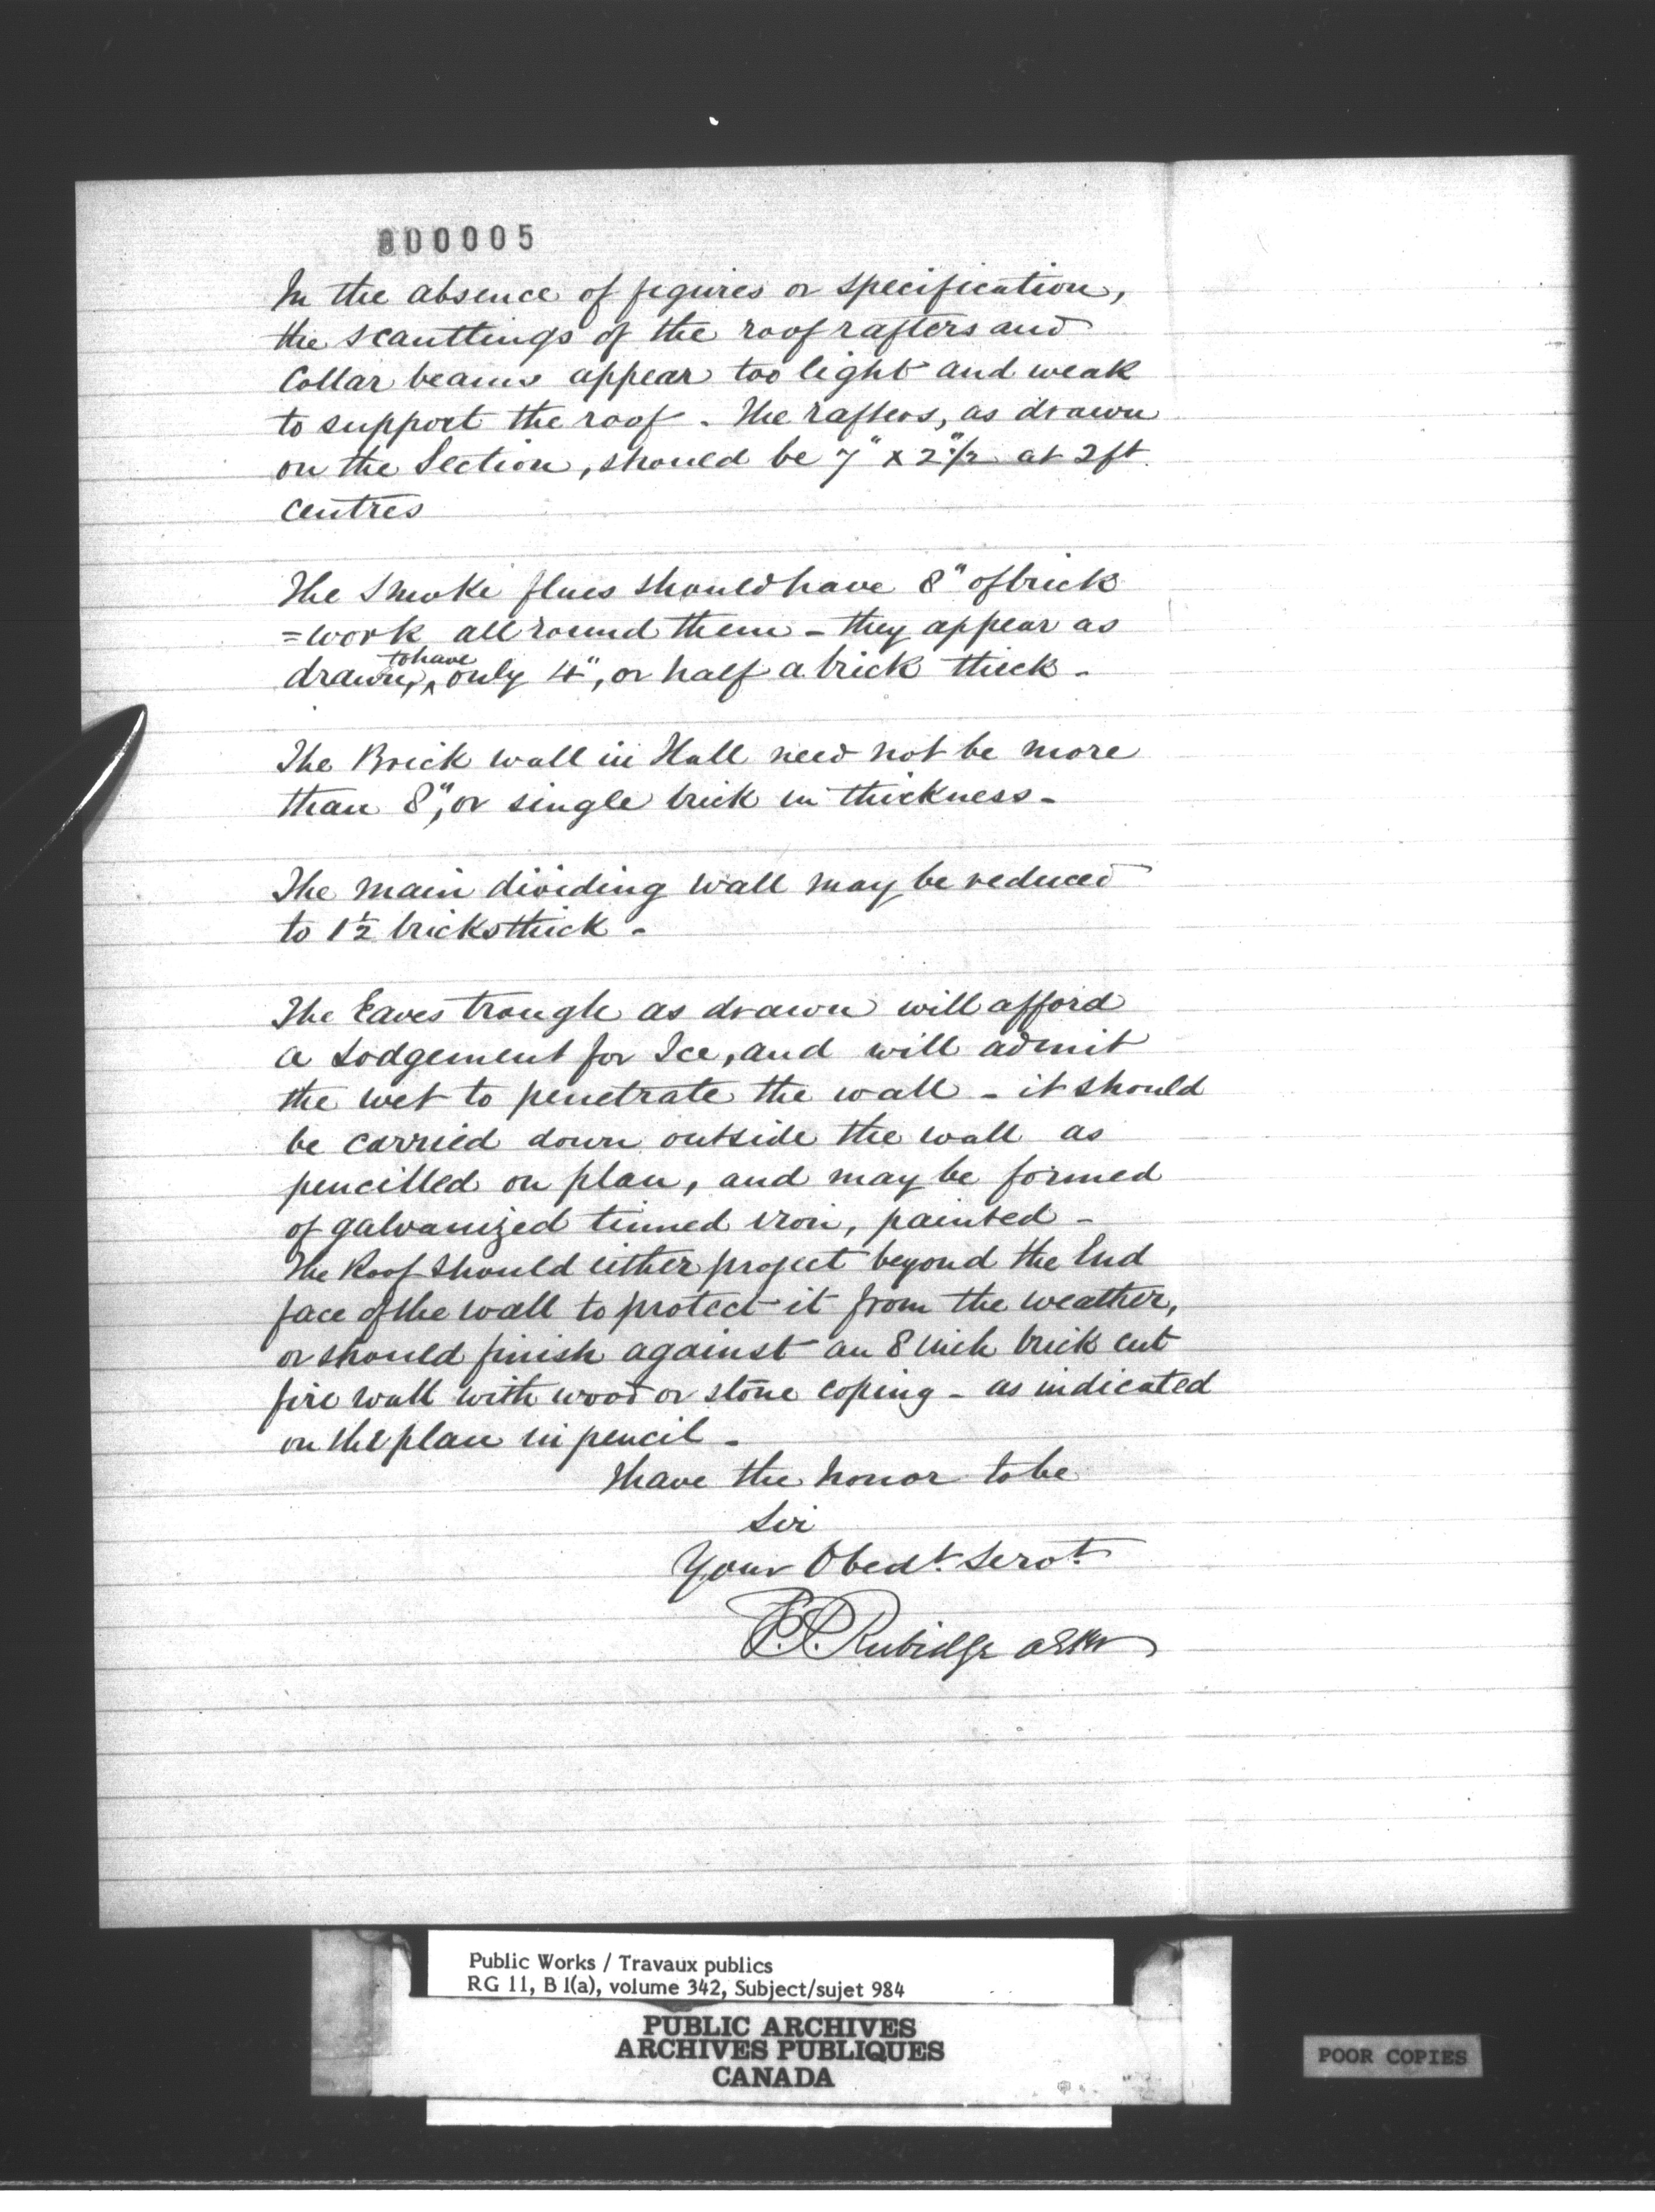 000005
In the absence of figures or specification,
the scanttings of the roof rafters and
Collar beams appear too light and weak
to support the roof. The rafters, as drawn
on the Section, should be 7" x 2"½ at 2 ft.
Centres
The Smoke flues should have 8" of brick
=work all round them - they appear as
drawn, to have only 4", or half a brick thick -
The Brick wall in Hall need not be more
than 8", or single brick in thickness -
The main dividing wall may be reduced
to 1½ bricks thick -
The Eaves trough as drawn will afford
a Lodgement for Ice, and will admit
the wet to penetrate the wall - it should
be carried down outside the wall as
pencilled on plan, and may be formed
of galvanized tinned iron, painted -
The Roof should either project beyond the End
face of the wall to protect it from the weather,
or should finish against an 8 inch brick cut
fire wall with wood or stone coping - as indicated
on the plan in pencil -
I have the honor to be
Sir
Your Obedt. Servt.
F.P. Rubidge
Public Works / Travaux publics
RG 11, B 1(a), volume 342, Subject/sujet 984
PUBLIC ARCHIVES
ARCHIVES PUBLIQUES
CANADA
POOR COPIES